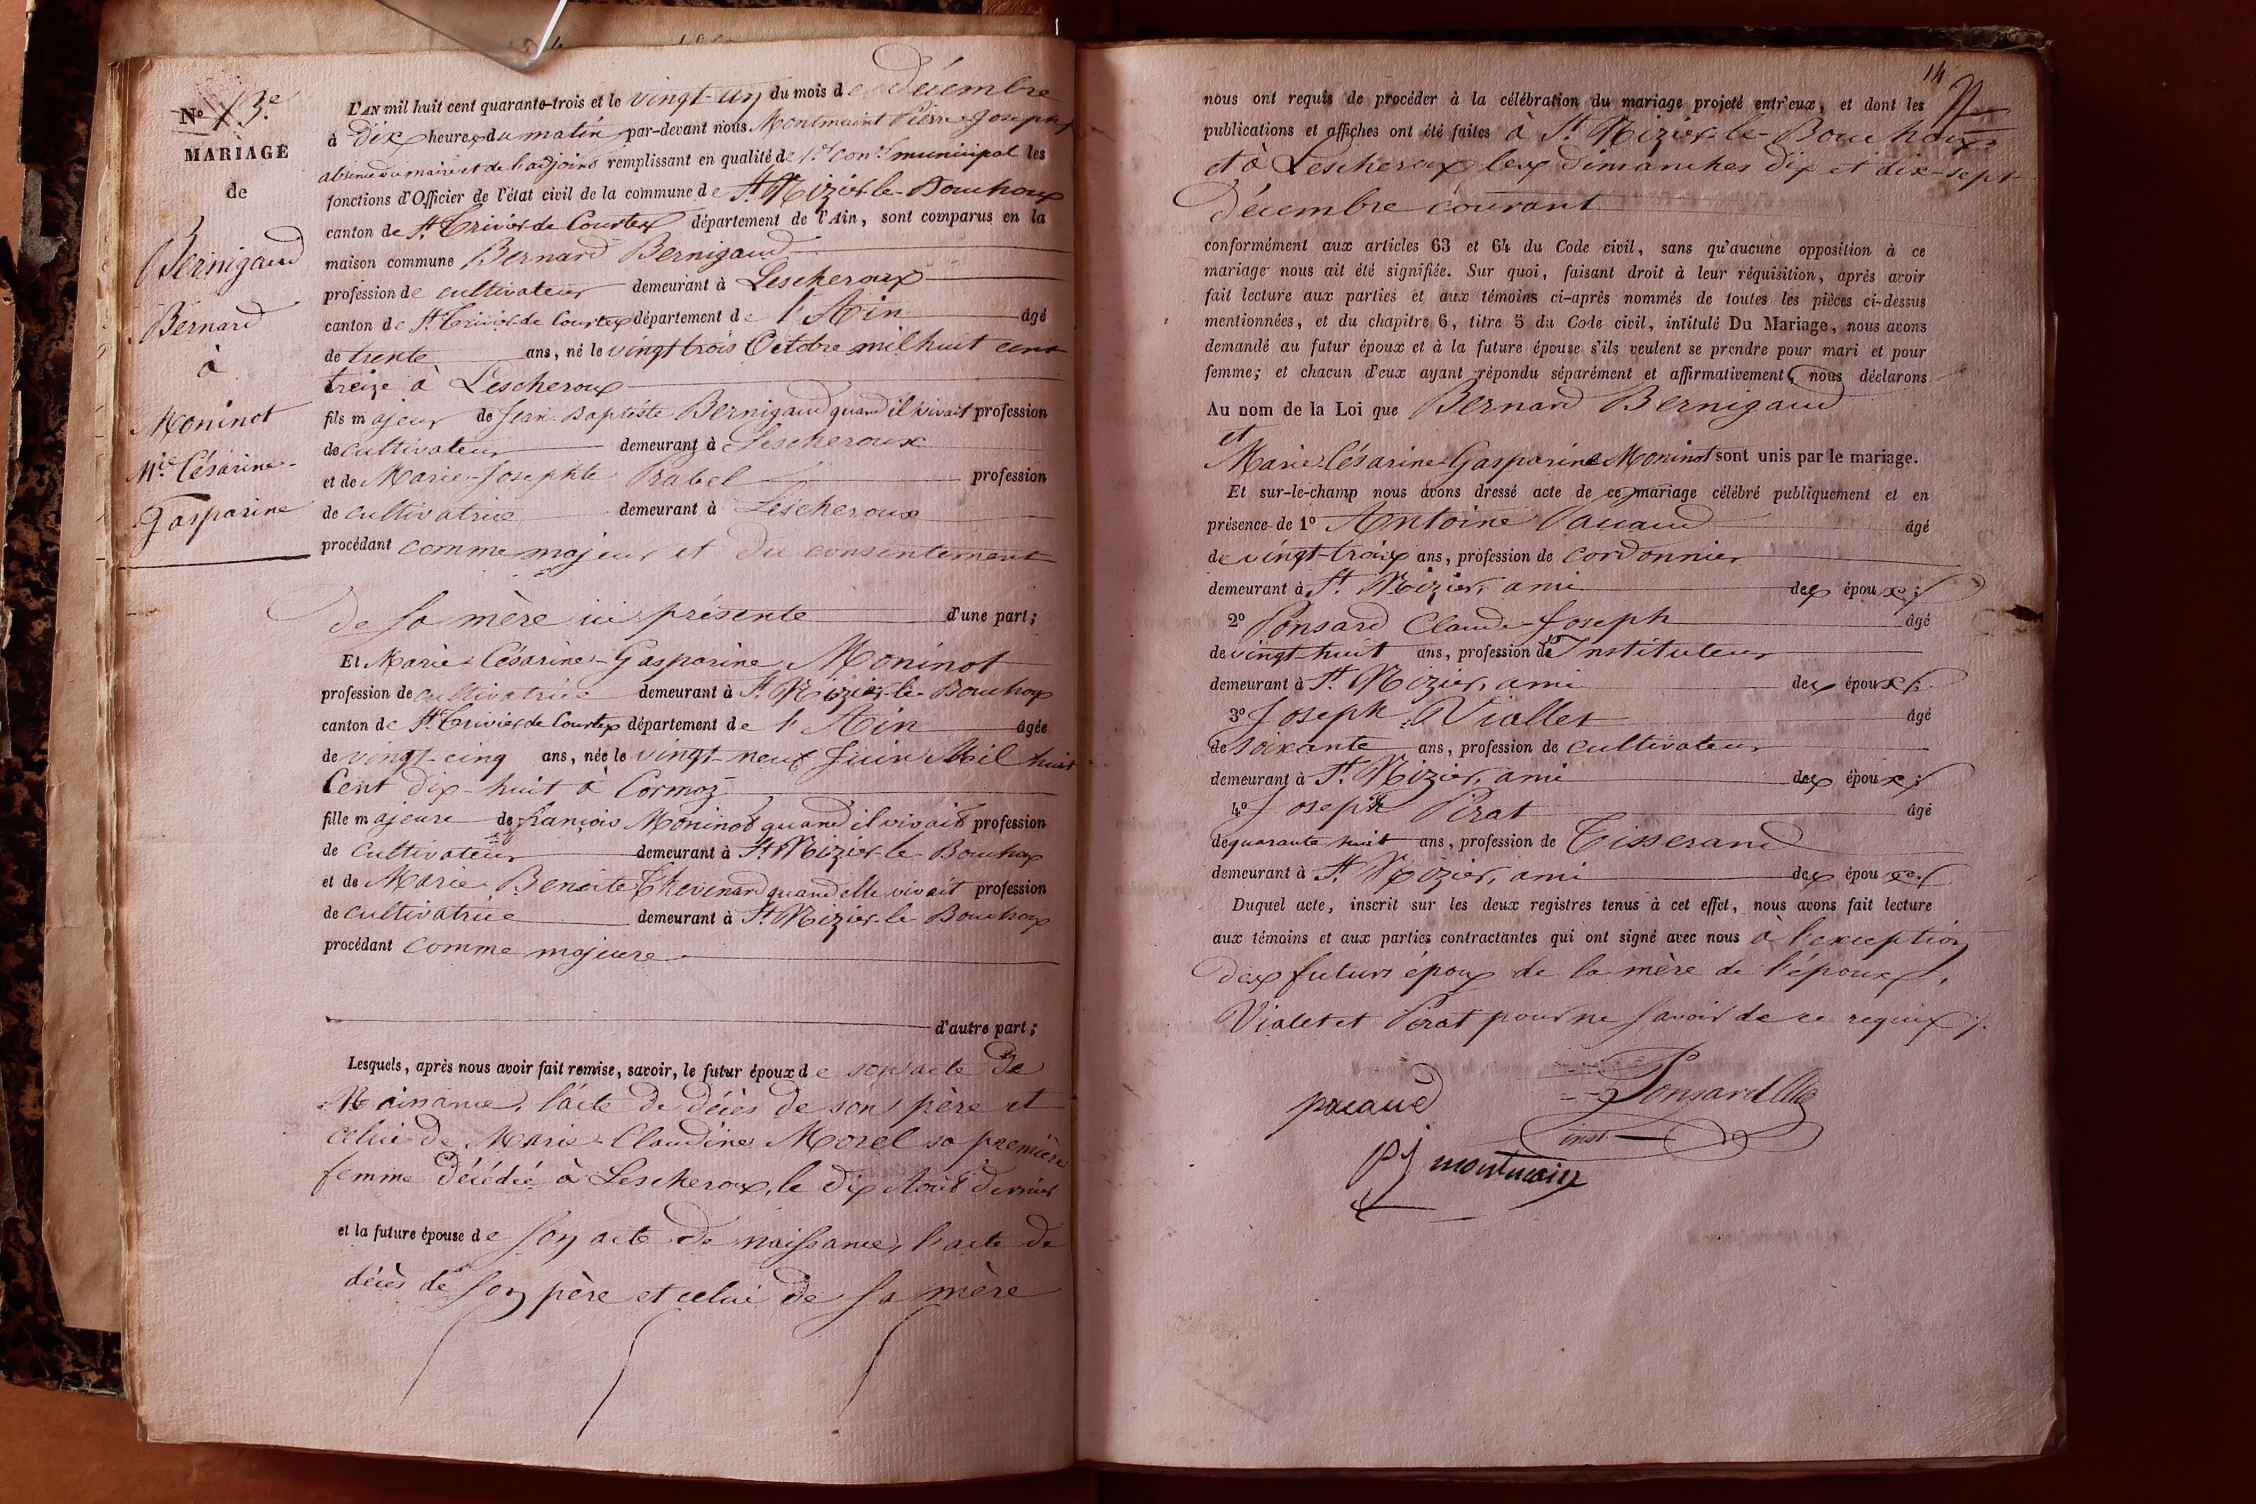 No 13.e
MARIAGE
de
Bernigaud
Bernard
à
Moninot
M.ie Césarine-
Gasparine
L'AN mil huit cent quarante-trois et le vingt-un du mois de Décembre
à dix heures du matin par-devant nous Montmaint Pierre Joseph
absence du maire et de l'adjoint remplissant en qualité de 1.er con.er municipal les
fonctions d'Officier de l'état civil de la commune de St. Nizier-le-Bouchoux
canton de St. Trivier de Courtes département de l'Ain, sont comparus en la
maison commune Bernard Bernigaud
profession de cultivateur demeurant à Lescheroux
canton de St. Trivier de Courtes département de l'Ain âgé
de trente ans, né le vingt trois Octobre mil huit cent
treize à Lescheroux
fils majeur de Jean Baptiste Bernigaud quand il vivait profession
de cultivateur demeurant à Lescheroux
et de Marie-Josephte Prabel profession
de cultivatrice demeurant à Lescheroux
procédant comme majeur et du consentement
de sa mère ici présente d'une part;
Et Marie-Césarine-Gasparine Moninot
profession de cultivatrice demeurant à St. Nizier-le-Bouchoux
canton de St. Trivier de Courtes département de l'Ain âgée
de vingt-cinq ans, née le vingt-neuf Juin Mil huit
Cent dix-huit à Cormoz
fille majeure de françois Moninot quand il vivait profession
de cultivateur demeurant à St. Nizier-le-Bouchoux
et de Marie Benoite Thevenard quand elle vivait profession
de cultivatrice demeurant à St. Nizier-le Bouchoux
procédant comme majeure
d'autre part;
Lesquels, après nous avoir fait remise, savoir, le futur époux de son acte de
Naissance, l'acte de décès de son père et
celui de Marie-Claudine Morel sa première
femme décédée à Lescheroux, le dix Août dernier
et la future épouse de son acte de naissance, l'acte de
décès de son père et celui de sa mère
14
nous ont requis de procéder à la célébration du mariage projeté entr'eux, et dont les
publications et affiches ont été faites à St. Nizier-le-Bouchoux
et à Lescheroux les Dimanches dix et dix-sept
Décembre courant
conformément aux articles 63 et 64 du Code civil, sans qu'aucune opposition à ce
mariage nous ait été signifiée. Sur quoi, faisant droit à leur réquisition, après avoir
fait lecture aux parties et aux témoins ci-après nommés de toutes les pièces ci-dessus
mentionnées, et du chapitre 6, titre 5 du Code civil, intitulé Du Mariage, nous avons
demandé au futur époux et à la future épouse s'ils veulent se prendre pour mari et pour
femme; et chacun d'eux ayant répondu séparément et affirmativement, nous déclarons
Au nom de la Loi que Bernard Bernigaud
et
Marie-Césarine-Gasparine Moninot sont unis par le mariage.
Et sur-le-champ nous avons dressé acte de ce mariage célébré publiquement et en
présence de 1o Antoine Pacaud âgé
de vingt-trois ans, profession de cordonnier
demeurant à St. Nizier, ami des époux;
2o Ponsard Claude-Joseph âgé
de vingt-huit ans, profession d'Instituteur
demeurant à St. Nizier, ami des époux;
3o Joseph Viallet âgé
de soixante ans, profession de cultivateur
demeurant à St. Nizier, ami des époux;
4o Joseph Pirat âgé
de quarante huit ans, profession de Tisserand
demeurant à St. Nizier, ami des époux.
Duquel acte, inscrit sur les deux registres tenus à cet effet, nous avons fait lecture
aux témoins et aux parties contractantes qui ont signé avec nous à l'exception
des futurs époux de la mère de l'époux,
Vialet et Pirat pour ne savoir de ce requis.
pacaud
Ponsard
inst
pj montmain